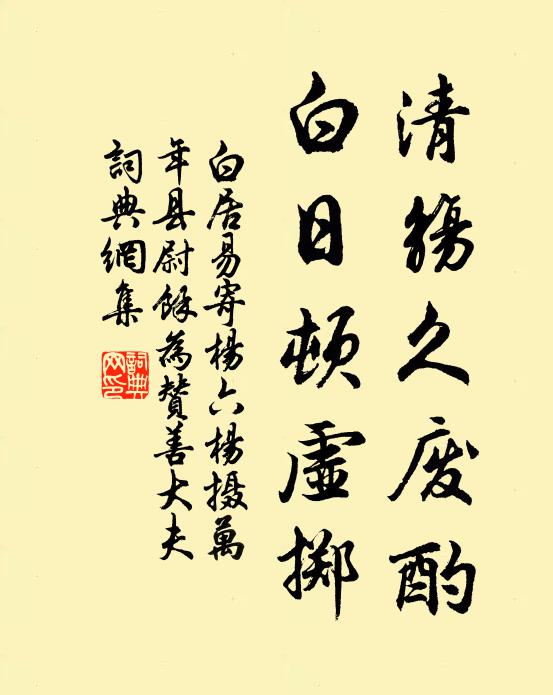 清觞久废酌
白日顿虚掷
白居易寄楊六楊摄萬
年县尉餘為贊善大夫
詞典網集
詞典
网印